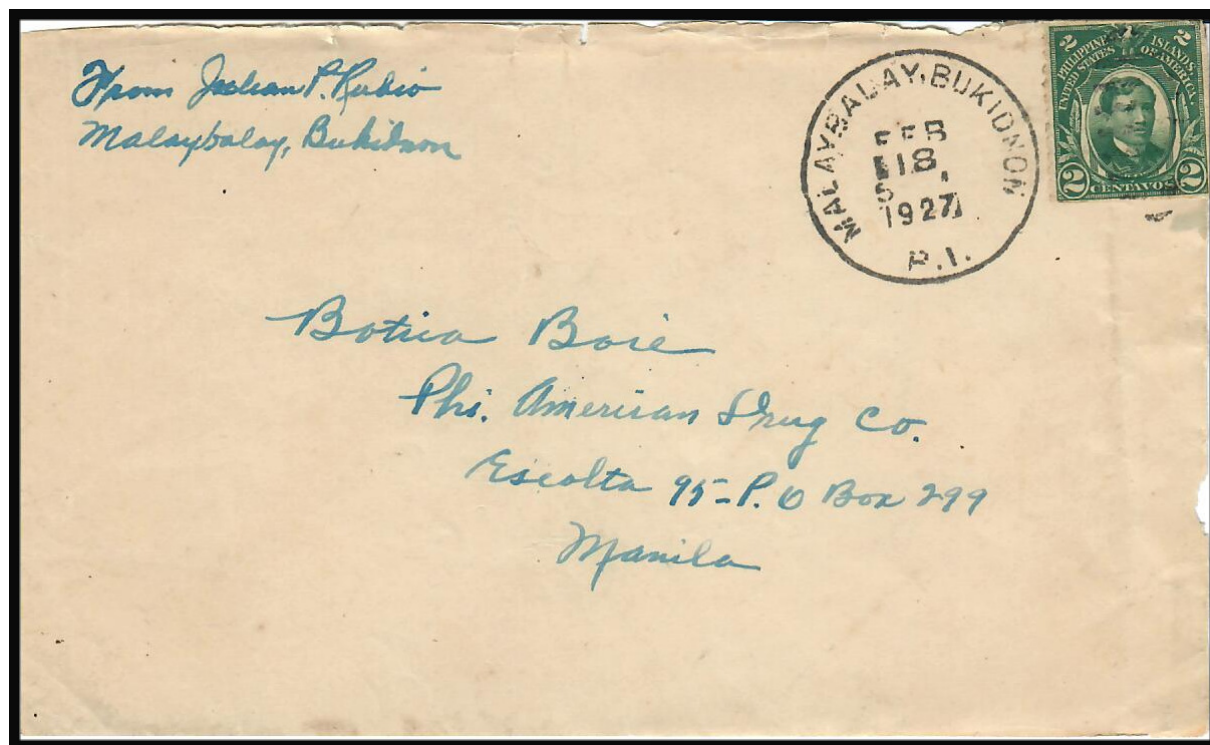 From Julian P. Rubio
Malaybalay, Bukidnon
MALAYBALAY, BUKIDNON
FEB
18
1927
P.I.
2 2
PHILIPPINE ISLANDS.
UNITED STATES OF AMERICA.
2 CENTAVOS 2
Botica Boie
Phi. American Drug Co.
Escolta 95-P. O Box 299
Manila